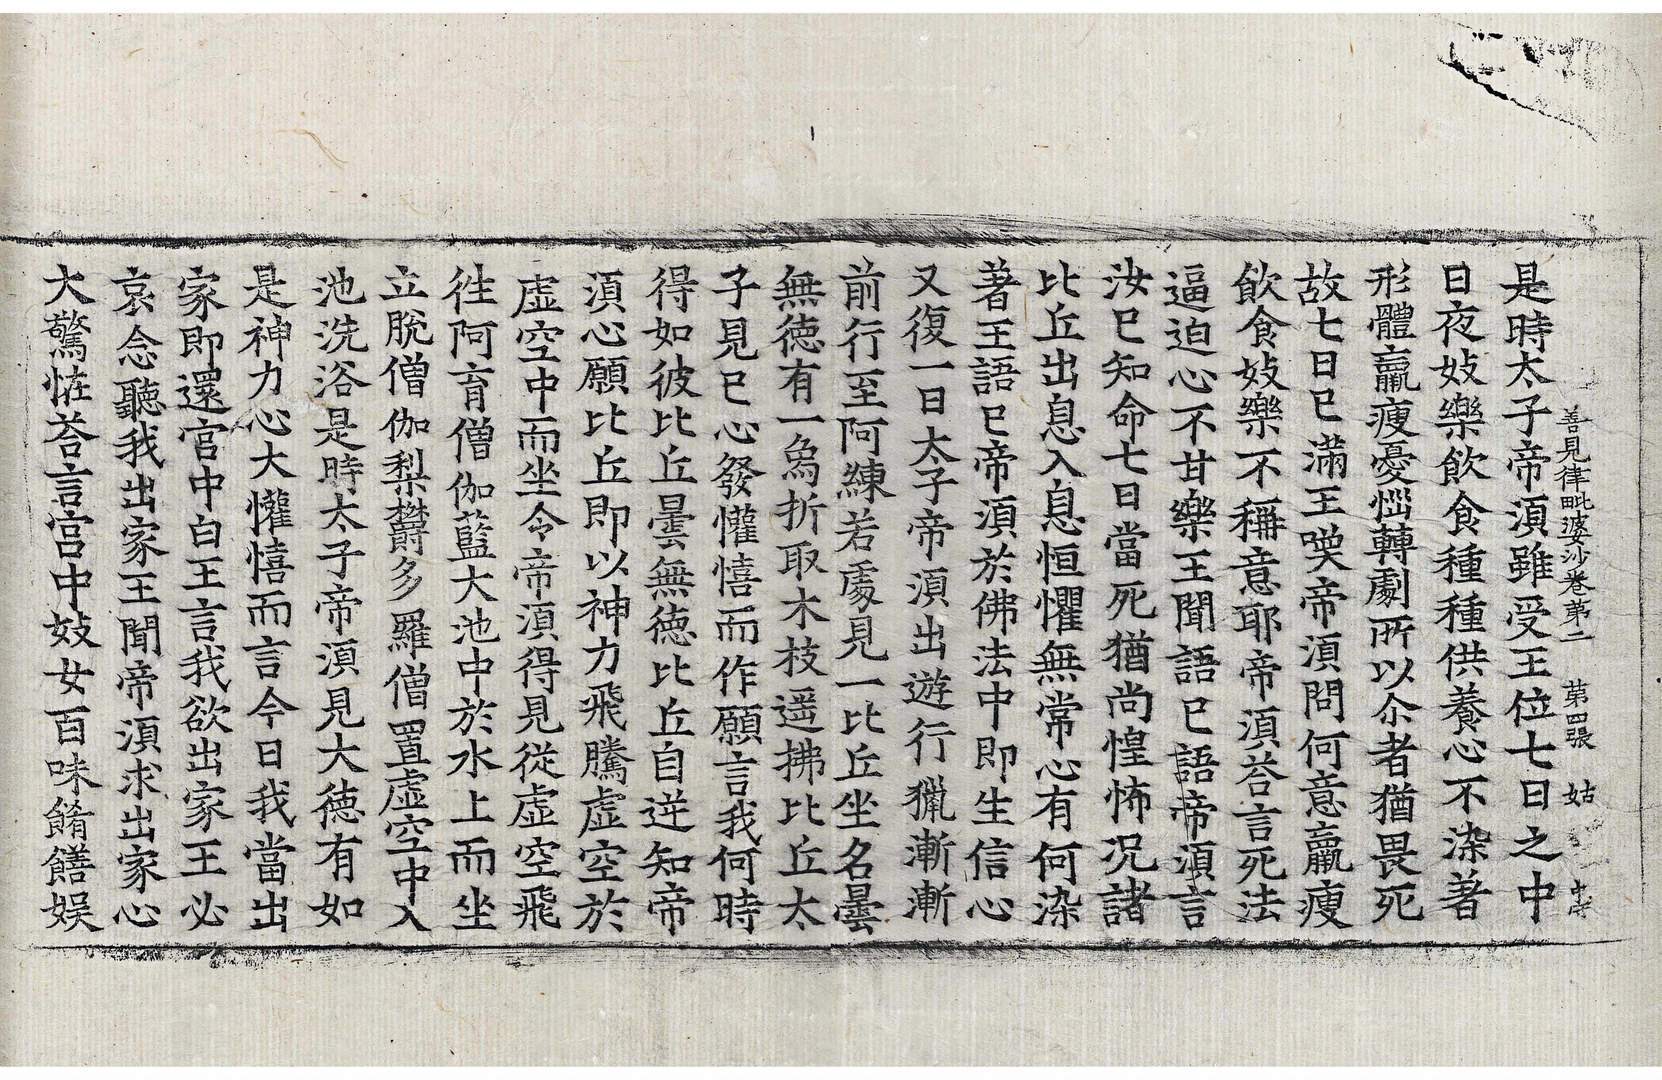 善見律毗婆沙卷第二 第四張 姑
是時太子帝湏雖受王位七日之中
日夜妓樂飲食種種供養心不染著
形體羸瘦憂惱轉劇所以尒者猶畏死
故七日已滿王嘆帝湏問何意羸瘦
飲食妓樂不稱意耶帝湏荅言死法
逼迫心不甘樂王聞語已語帝湏言
汝已知命七日當死猶尚惶怖况諸
比丘出息入息恒懼無常心有何染
著王語已帝湏於佛法中即生信心
又復一日太子帝湏出遊行獵漸漸
前行至阿練若處見一比丘坐名曇
無德有一象折取木枝遥拂比丘太
子見已心發懽憘而作願言我何時
得如彼比丘曇無德比丘自逆知帝
湏心願比丘即以神力飛騰虛空於
虛空中而坐令帝湏得見從虛空飛
徃阿育僧伽藍大池中於水上而坐
立脫僧伽梨欝多羅僧置虛空中入
池洗浴是時太子帝湏見大德有如
是神力心大懽憘而言今日我當出
家即還宮中白王言我欲出家王必
哀念聽我出家王聞帝湏求出家心
大驚恠荅言宮中妓女百味餚饍娱